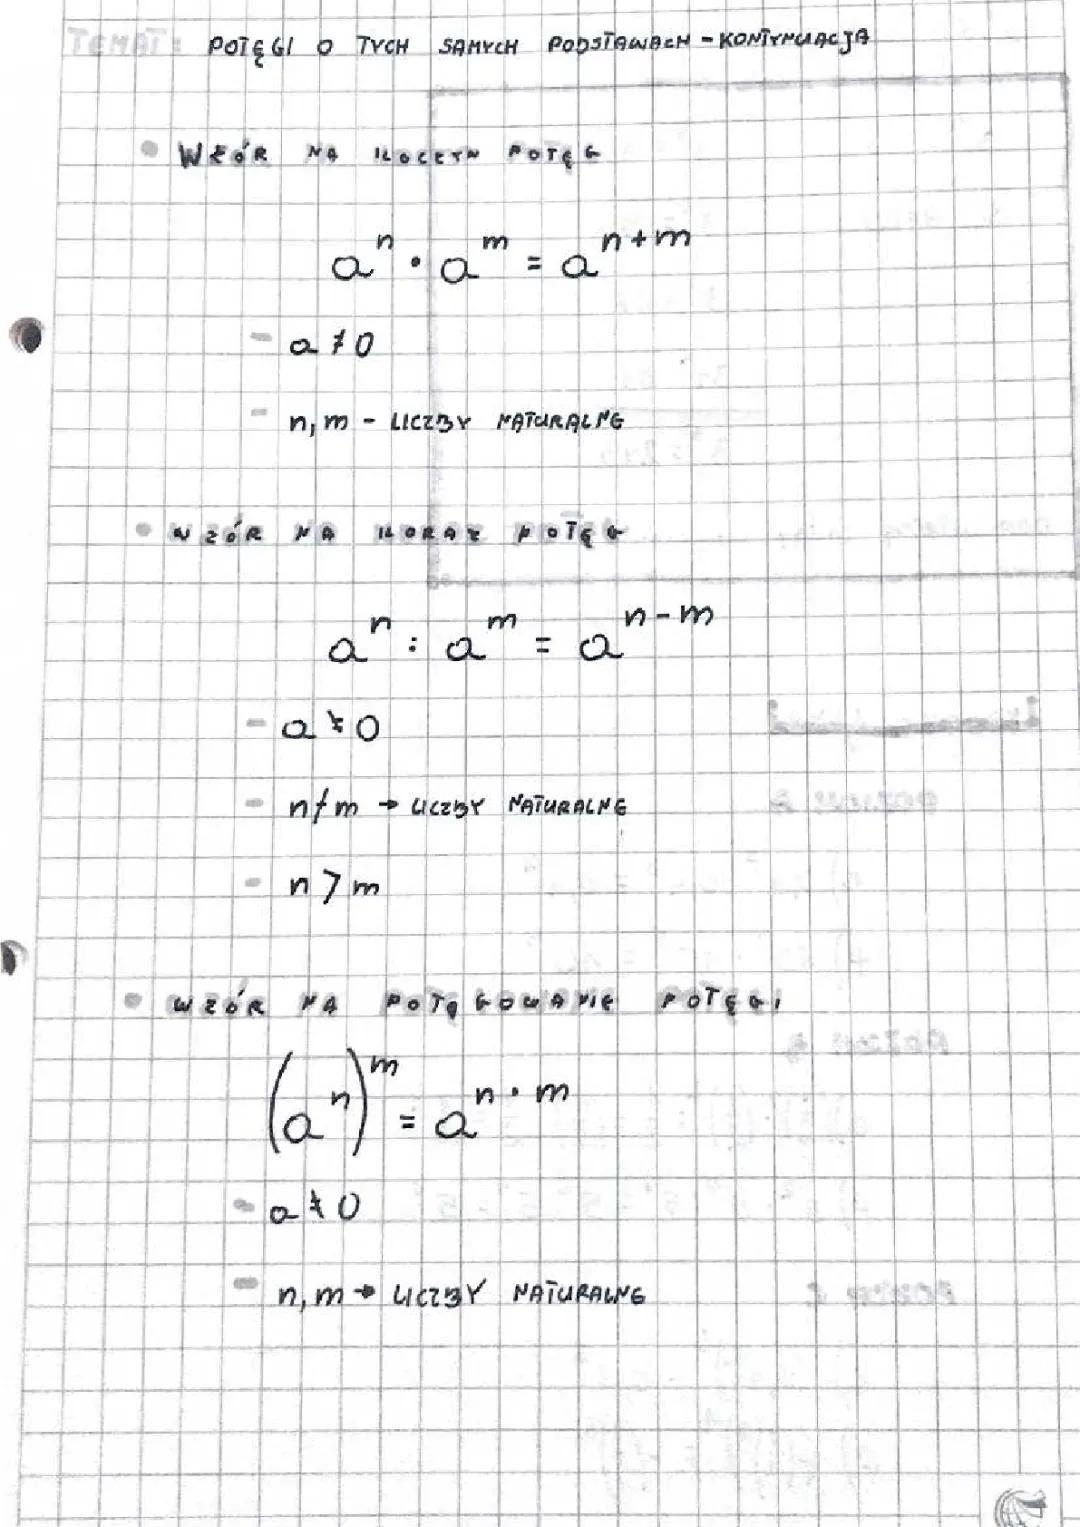 TEMAT: POTĘGI O TYCH SAMYCH PODSTAWACH - KONTYNUACJA
• WZÓR NA ILOCZYN POTĘG
aⁿ · aᵐ = aⁿ⁺ᵐ
- a ≠ 0
- n, m - LICZBY NATURALNE
• WZÓR NA ILORAZ POTĘG
aⁿ : aᵐ = aⁿ⁻ᵐ
- a ≠ 0
- n/m → LICZBY NATURALNE
- n > m
• WZÓR NA POTĘGOWANIE POTĘGI
(aⁿ)ᵐ = aⁿ·ᵐ
- a ≠ 0
- n, m → LICZBY NATURALNE